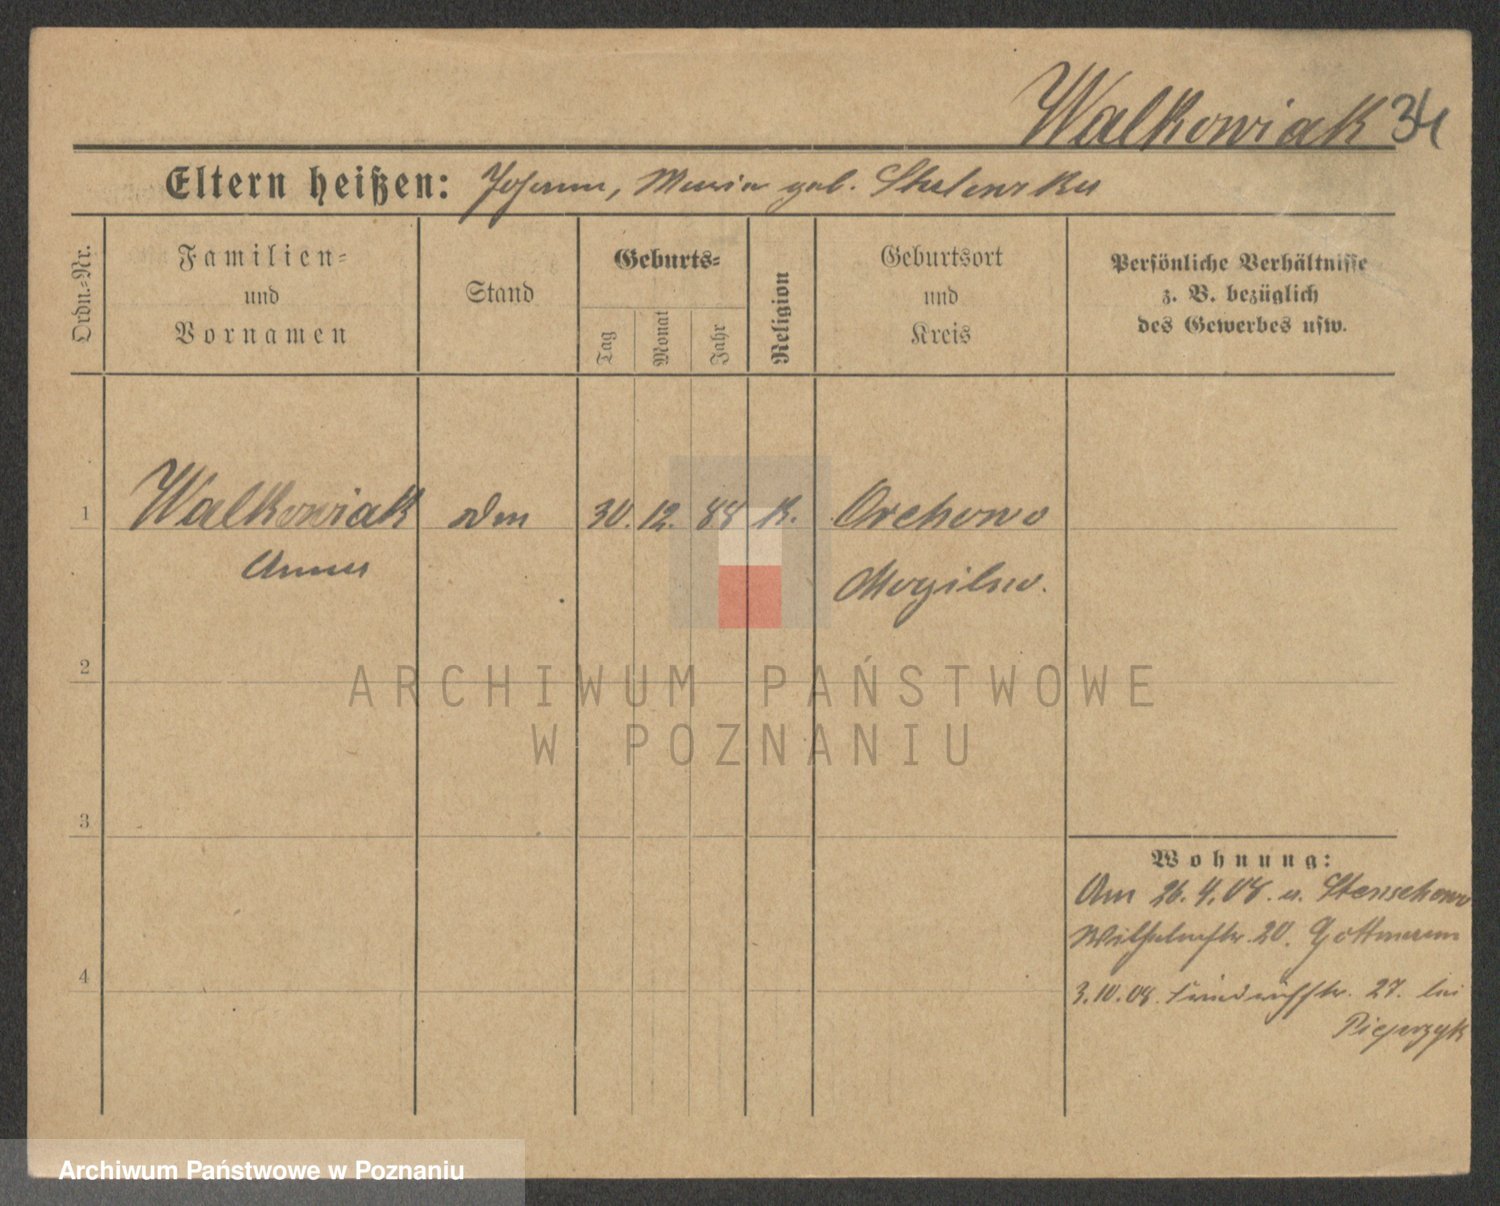 Walkowiak 34
Eltern heißen: Johann, Maria geb.
Ordn.-Nr.
Familien-
und
Vornamen
Stand
Geburts-
Tag
Monat
Jahr
Religion
Geburtsort
und
Kreis
Persönliche Verhältnisse
z. B. bezüglich
des Gewerbes usw.
1 Walkowiak 30. 12. 88 K. Orchowo
Anna Mogilno.
2
3
4
Wohnung:
Am 26.4.08. v. Stenschewo
Wilhelmstr. 20. Gottmann
3.10.08. Friedrichstr. 27. bei
ARCHIWUM PAŃSTWOWE
W POZNANIU
Archiwum Państwowe w Poznaniu